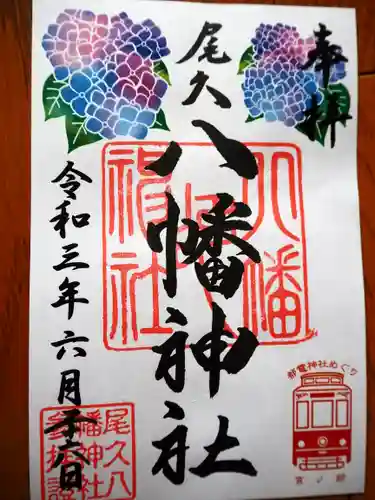 奉拝
尾久
八幡神社
八幡
神社
令和三年六月六日
尾久八
幡神社
都電神社めぐり
宮ノ前